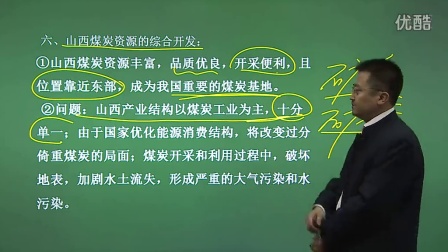 优酷
六、山西煤炭资源的综合开发：
①山西煤炭资源丰富，品质优良，开采便利，且
位置靠近东部，成为我国重要的煤炭基地。
②问题：山西产业结构以煤炭工业为主，十分
单一；由于国家优化能源消费结构，将改变过分
倚重煤炭的局面；煤炭开采和利用过程中，破坏
地表，加剧水土流失，形成严重的大气污染和水
污染。